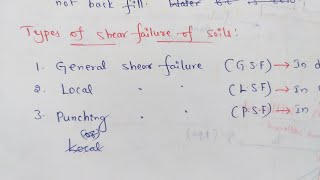 not back fill.
Types of shear failure of soils:
1. General shear failure (G.S.F) → In d
2. Local " " (L.S.F) → In
3. Punching " " (P.S.F) → In
(or)